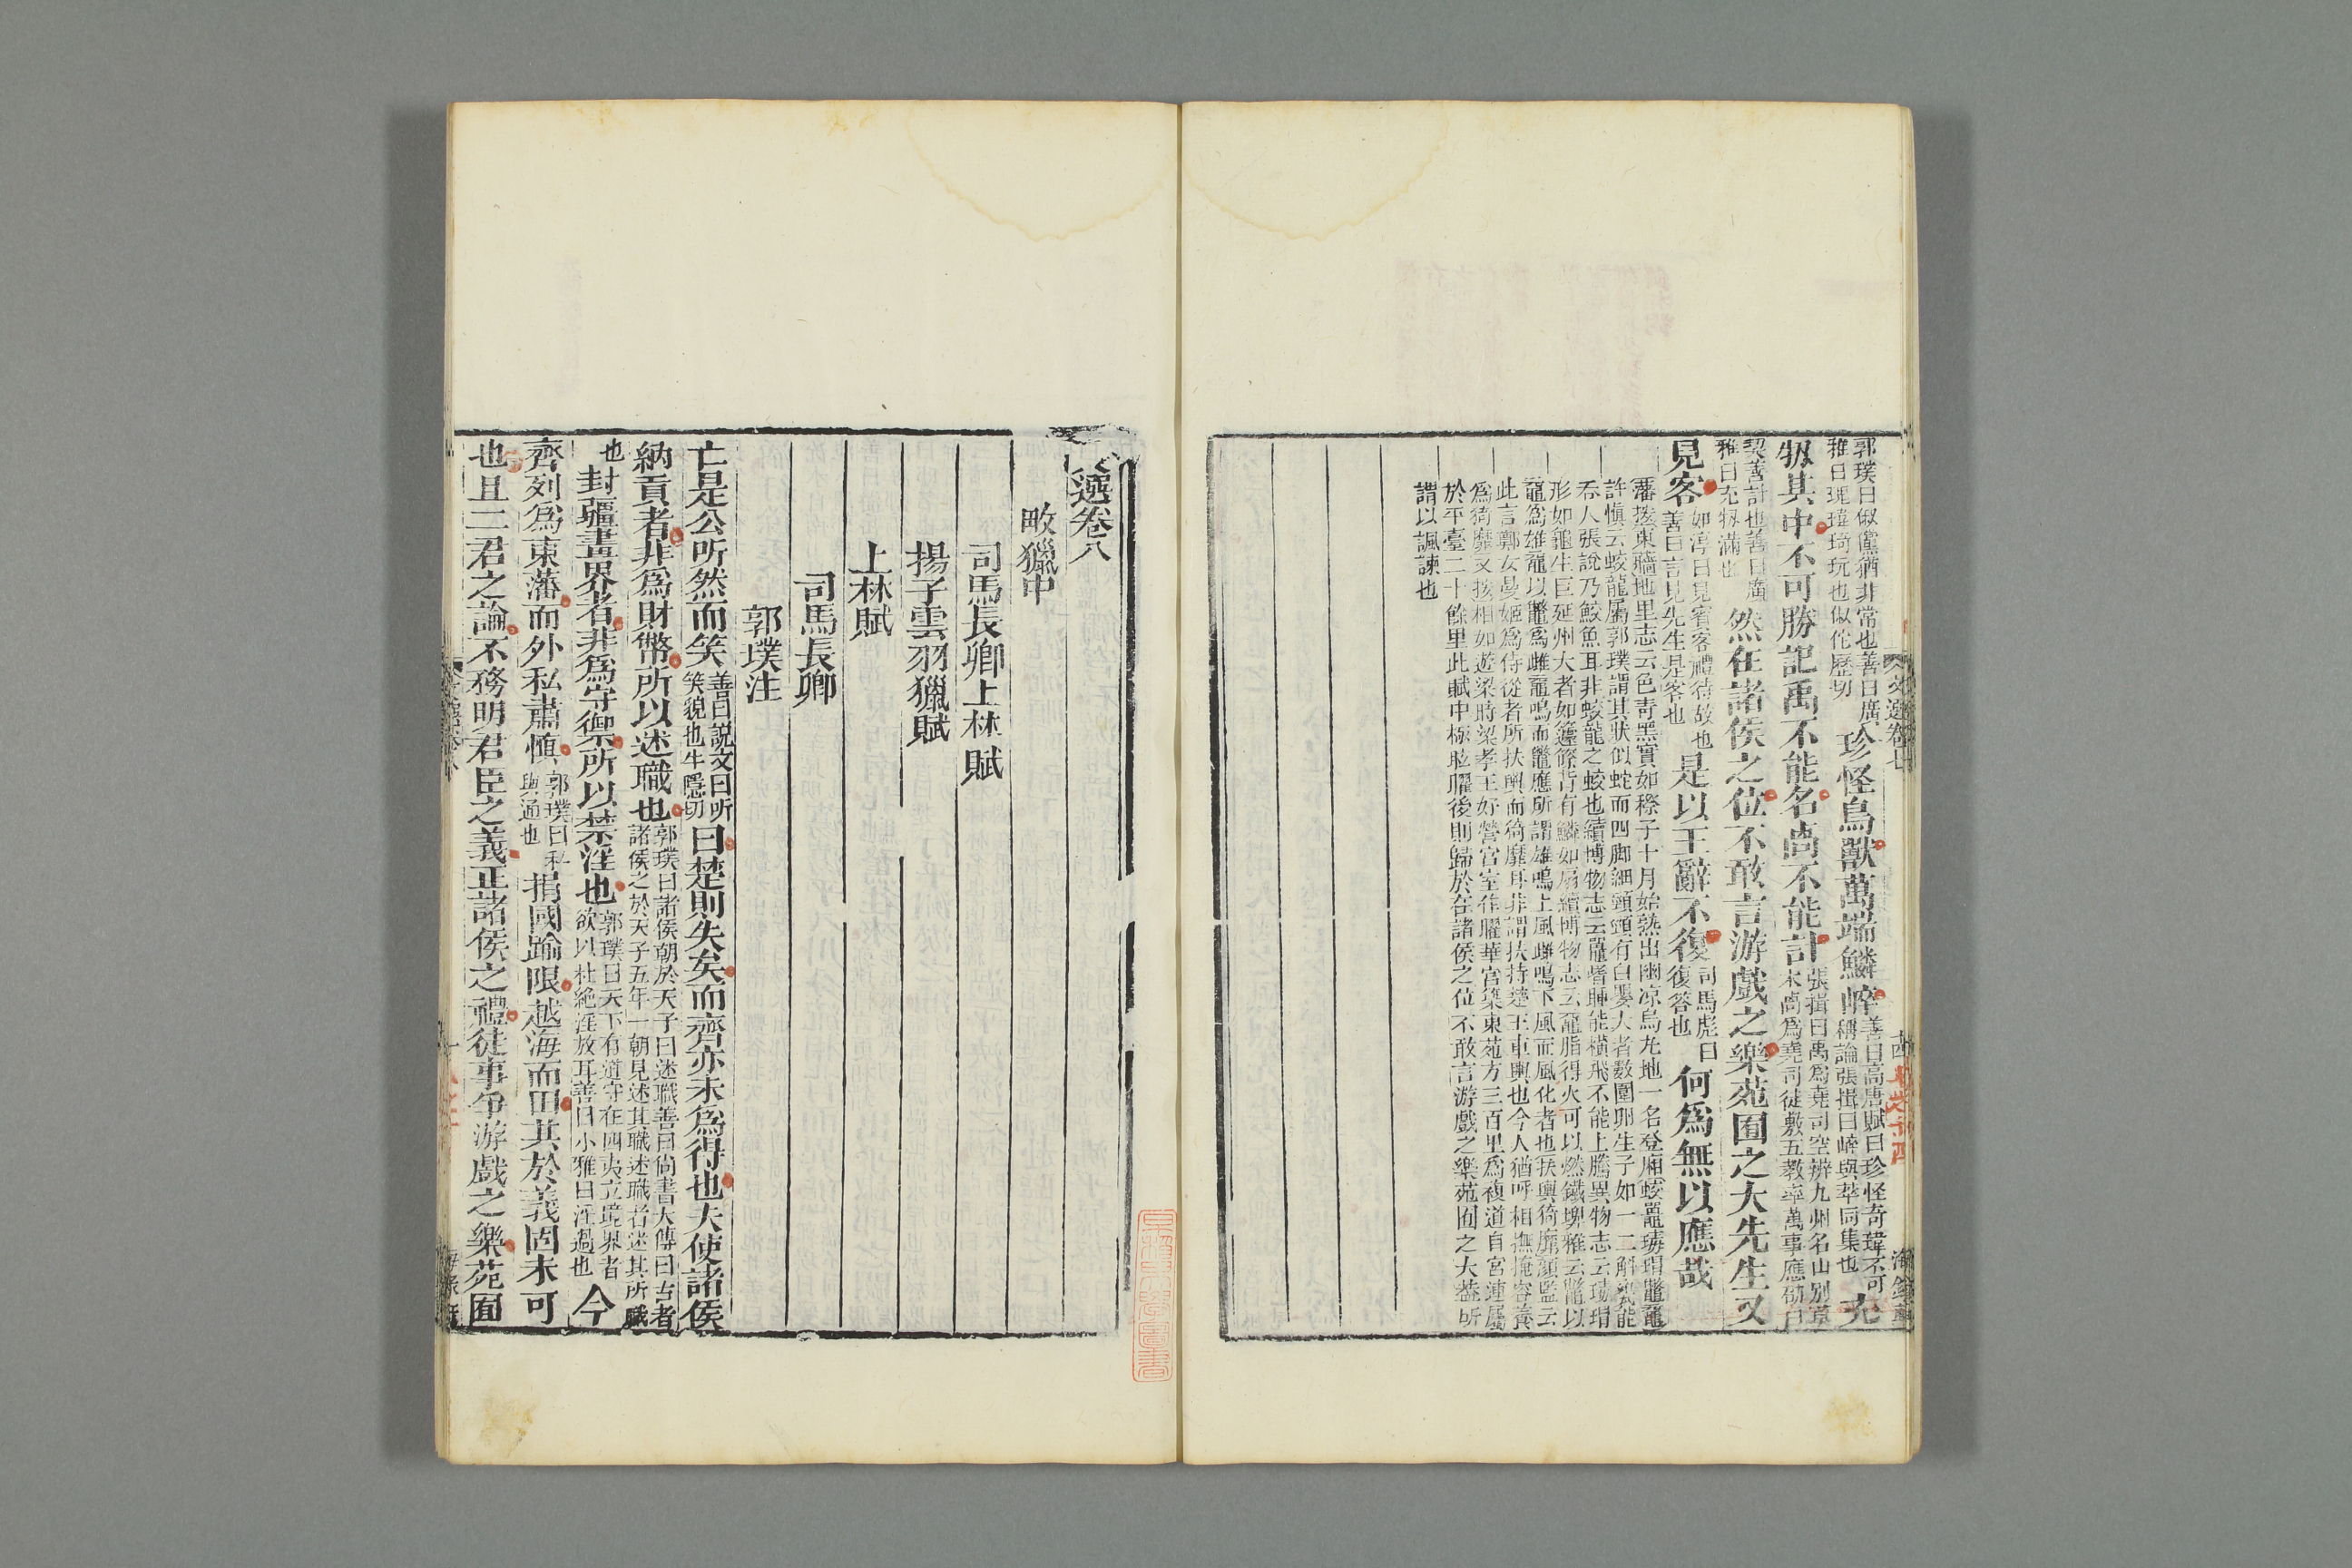 郭璞曰俶儻猶非常也善曰廣
雅曰瑰瑋琦玩也俶佗歷切
珍怪鳥獸萬端鱗崪
善曰高唐賦曰珍怪奇瑋不可
稱論張揖曰崪與萃同集也
充
牣其中不可勝記禹不能名卨不能計
張揖曰禹爲堯司空辨九州名山別草
木卨爲堯司徒敷五教率萬事應劭曰
契善計也善曰廣
雅曰充牣滿也
然在諸侯之位不敢言游戲之樂苑囿之大先生又
見客
如淳曰見賓客禮待故也
善曰言見先生是客也
是以王辭不復
司馬彪曰
復答也
何爲無以應哉
藩援東牆地里志云色青黑實如穄子十月始熟出幽凉烏丸地一名登廂蛟鼉瑇瑁鼈黿
許愼云蛟龍屬郭璞謂其狀似蛇而四脚細頸頸有白嬰大者數圍卵生子如一二斛瓮能
吞人張說乃鮫魚耳非蛟龍之蛟也續博物志云鼉嗜睡能橫飛不能上騰異物志云瑇瑁
形如龜生巨延州大者如籧篨背有鱗如扇續博物志云黿脂得火可以燃鐵埤雅云鼈以
黿爲雄黿以鼈爲雌黿鳴而鼈應所謂雄鳴上風雌鳴下風而風化者也扶輿猗靡顔監云
此言鄭女曼姬爲侍從者所扶輿而猗靡耳非謂扶持楚王車輿也今人猶呼相撫掩容養
爲猗靡又按相如遊梁時梁孝王好營宮室作曜華宮築東苑方三百里爲複道自宮連屬
於平臺二十餘里此賦中極眩曜後則歸於在諸侯之位不敢言游戲之樂苑囿之大葢所
謂以諷諫也
文選卷七
十四
海錄軒
選卷八
畋獵中
司馬長卿上林賦
揚子雲羽獵賦
上林賦
司馬長卿
郭璞注
亡是公听然而笑
善曰説文曰听
笑貌也牛隱切
曰楚則失矣而齊亦未爲得也夫使諸侯
納貢者非爲財幣所以述職也
郭璞曰諸侯朝於天子曰述職善曰尚書大傳曰古者
諸侯之於天子五年一朝見述其職述職者述其所職
也
封疆畫界者非爲守禦所以禁淫也
郭璞曰天下有道守在四夷立境界者
欲以杜絶淫放耳善曰小雅曰淫過也
今
齊列爲東藩而外私肅愼
郭璞曰私
與通也
捐國踰限越海而田其於義固未可
也且二君之論不務明君臣之義正諸侯之禮徒事爭游戲之樂苑囿